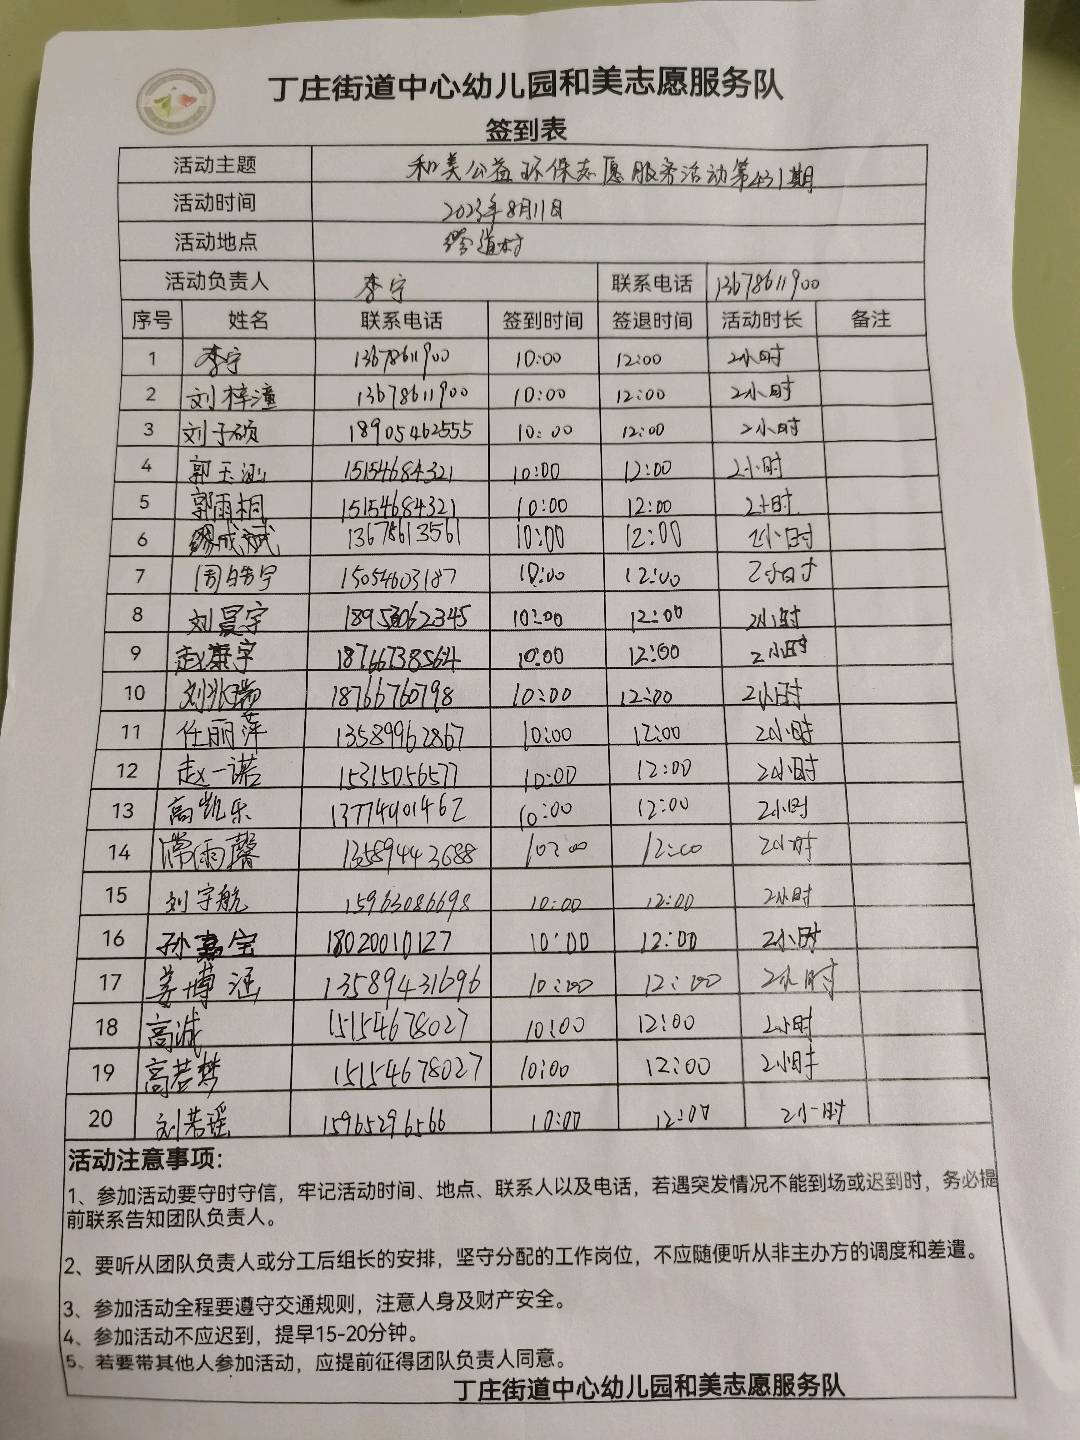 丁庄街道中心幼儿园和美志愿服务队
签到表
活动主题 和美公益环保志愿服务活动第431期
活动时间 2023年8月11日
活动地点 道村
活动负责人 李宁 联系电话 13678611900
序号 姓名 联系电话 签到时间 签退时间 活动时长 备注
1 李宁 13678611900 10:00 12:00 2小时
2 刘梓潼 13678611900 10:00 12:00 2小时
3 刘子硕 18905462555 10:00 12:00 2小时
4 郭玉涵 15154684321 10:00 12:00 2小时
5 郭雨桐 15154684321 10:00 12:00 2小时
6 缪成斌 13678613561 10:00 12:00 2小时
7 周皓宇 15054603187 10:00 12:00 2小时
8 刘昊宇 18953062345 10:00 12:00 2小时
9 赵康宇 18766738564 10:00 12:00 2小时
10 刘兆瑞 18766760798 10:00 12:00 2小时
11 任丽萍 13589962867 10:00 12:00 2小时
12 赵一诺 15315056577 10:00 12:00 2小时
13 高凯乐 13774901462 10:00 12:00 2小时
14 雨馨 13589443688 10:00 12:00 2小时
15 刘宇航 15963086698 10:00 12:00 2小时
16 孙嘉宝 18020010127 10:00 12:00 2小时
17 姜博涵 13589431696 10:00 12:00 2小时
18 高诚 15154678027 10:00 12:00 2小时
19 高若梦 15154678027 10:00 12:00 2小时
20 刘若瑶 15965296566 10:00 12:00 2小时
活动注意事项：
1、参加活动要守时守信，牢记活动时间、地点、联系人以及电话，若遇突发情况不能到场或迟到时，务必提
前联系告知团队负责人。
2、要听从团队负责人或分工后组长的安排，坚守分配的工作岗位，不应随便听从非主办方的调度和差遣。
3、参加活动全程要遵守交通规则，注意人身及财产安全。
4、参加活动不应迟到，提早15-20分钟。
5、若要带其他人参加活动，应提前征得团队负责人同意。
丁庄街道中心幼儿园和美志愿服务队